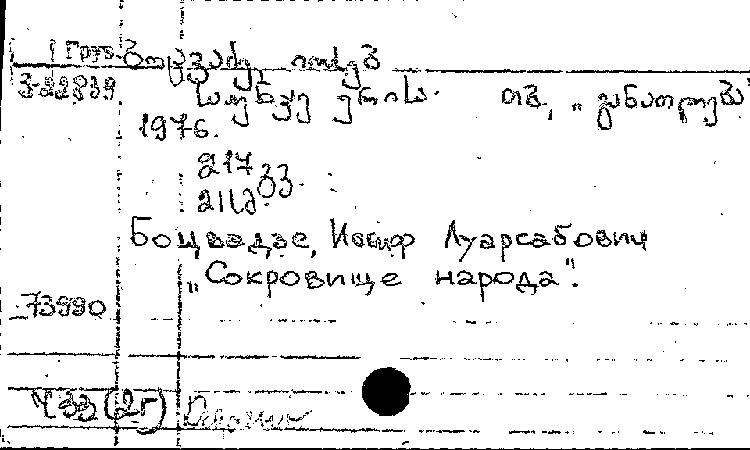 Груз.
ბოცვაძე, იოსებ
3-22839
საუნჯე ერისა. თბ., „განათლება"
1976.
217 გვ.
Боцвадзе, Иосиф Луарсабович
„Сокровище народа".
73990
Ч 33 (2Г)